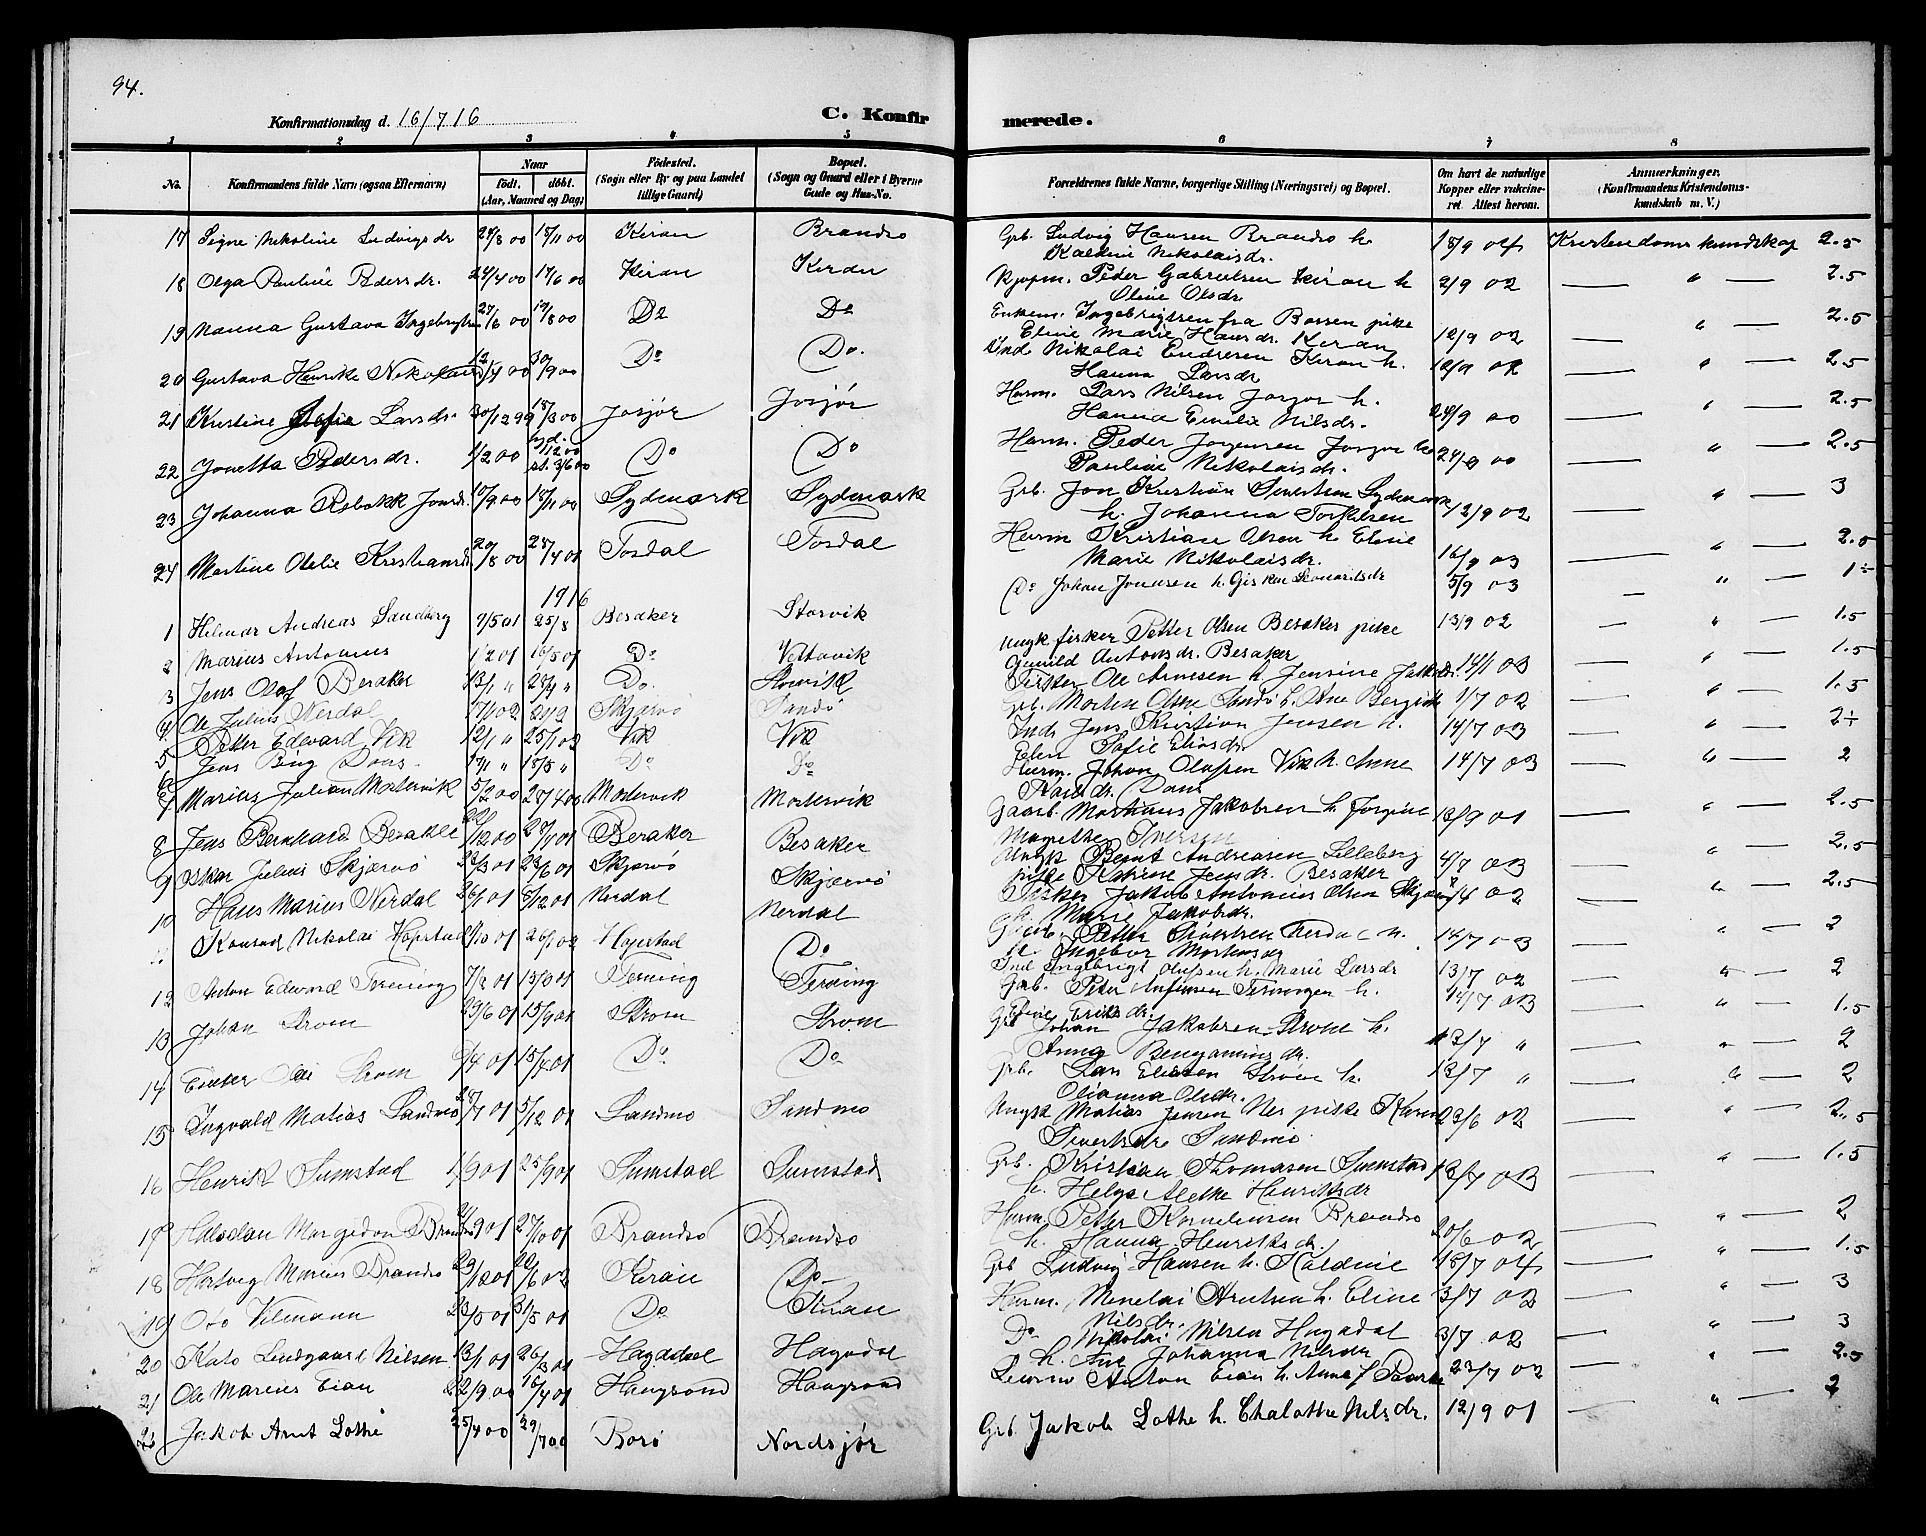 94.
Konfirmationsdag d. 16/7 16
C. Konfirmerede.
1 2 3 4 5 6 7 8
No. Konfirmandens fulde Navn (ogsaa Efternavn) Naar født. døbt. (Aar, Maaned og Dag) Fødested. (Sogn eller By og paa Landet tillige Gaard) Bopæl. (Sogn og Gaard eller i Byerne Gade og Hus-No. Forældrenes fulde Navne, borgerlige Stilling (Næringsvei) og Bopæl. Om havt de naturlige Kopper eller vaccineret. Attest herom. Anmærkninger. (Konfirmandens Kristendomskundskab m. V.)
17 Signe Nikoline Ludvigsdr 18/11 00 Kiran Brandsø Grb. Ludvig Hansen Brandsø h. 18/9 04 Kristendomskundskap 2.5
Kaldine Nikolaisdr.
18 Olga Pauline Pedersdr. 24/4 00 17/6 00 Kiran Kiran Kjøpm. Peder Gabrielsen Kiran h 2/9 02 " 2.5
Oline Olsdr.
19 Nanna Gustava Ingebrigtsen 27/6 00 19/8 00 Do Do Enkem. Ingebrigtsen fra Bossen pike 12/9 02 " 2.5
Eline Marie Hansdr. Kiran
20 Gustava Henrikke 12/4 00 30/9 00 Do Do. Ind. Nikolai Endresen Kiran h. 12/9 02 " 2.5
Hanna Larsdr
21 Kristine Sofie Larsdr. 30/12 99 18/3 00 Josjør Josjør Husm. Lars Nilsen Josjør h. 24/9 00 " 2.5
Hanna Emilie Nilsdr.
22 Jonetta Pedersdr. 1/2 00 st. 3/6 00 Do Do Husm. Peder Jørgensen Josjør h 24/9 00 " 2.5
Pauline Nikolaisdr.
23 Johanna Rebekk Jonsdr. 17/9 00 18/11 00 Sydmark Sydmark Grb. Jon Kristian Sivertsen Sydmark 12/9 02 " 3
h. Johanna Torkilsen
24 Martine Otelie Kristiansdr. 20/8 00 28/4 01 Tosdal Tosdal Husm Kristian Olsen h. Eline 16/9 03 " 2.5
Marie Nikolaisdr.
1916
1 Hilmar Andreas Sandberg 9/5 01 25/8 Besaker Storvik Do Johan Jonasen h. Giskin Leonartsdr 5/9 03 "
2 Marius Antonius 1/2 01 16/5 01 Do Vettavik Ungk fisker Petter Olsen Besaker pike 13/9 02 " 1.5
Gunild Antonsdr. Besaker
3 Jens Olaf Besaker 13/1 " 28/4 " Do. Storvik Fisker Ole Arnesen h Jensine Jakobsdr. 14/1 03 " 1.5
4 Ole Julius Nerdal Skjærvø Sandø Grb. Morten Olsen Sandø h. Ane Bergitte 1/7 02 " 1.5
5 Petter Edevard Vik 12/1 " 25/1 02 Vik Vik Ind. Jens Kristian Jensen h. 14/7 03 "
Elen Sofie Eliasdr.
6 Jens Bing Dons 17/1 " 18/5 " Do Do Husm. Johan Olufsen Vik h. Anne 14/7 03 " 2
Karisdr. Dons
7 Marius Julian Mostervik 5/2 00 28/4 00 Mostervik Mostervik Gaarb. Martinus Jakobsen h. Jørgine 12/9 01 " 2.5
Magrethe Iversen
8 Jens Bernhard Besaker 22/12 00 28/4 01 Besaker Besaker Ungk Bernt Andreasen Lilleberg 4/7 03 " 2.5
pike Katrine Jensdr. Besaker
9 Oskar Julius Skjærvø 22/3 01 23/6 01 Skjærvø Skjærvø Fisker Jakob Antonius Olsen Skjærvø 02 " 2.5
h. Marie Jakobsdr.
10 Hans Marius Nerdal 26/1 01 8/12 01 Nerdal Nerdal Petter Sivertsen Nerdal h. 14/7 03 " 2
Ingebor Mortensdr
Konrad Nikolai Hopstad 2/10 01 26/1 02 Hopstad Do Ind Ingebrigt Olufsen h. Marie Larsdr 13/7 02 " 2
12 Anton Edevard Terning 7/2 01 13/9 01 Terning Terning Grb. Peter Terningen h. 14/7 03 " 1.5
Eline Eriksdr.
13 Johan Strøm 29/6 01 15/9 01 Strøm Strøm Grb Johan Jakobsen Strøm h. 13/7 " " 2
Anna Benjaminsdr.
14 Einar Oli Strøm 9/4 01 15/4 01 Do Do Grb. Lars Eliesen Strøm h. 13/7 " " 2
Olianna Olsdr.
15 Ingvald Matias Sandmo 28/7 01 5/12 01 Sandmo Sandmo Ungk Matias Jensen Nes pike Karen 23/6 02 " 2.5
Sivertsdr Sandmo
16 Henrik Sumstad 1/9 01 25/9 01 Sumstad Sumstad Grb. Kristian Thomasen Sumstad 13/7 03 " 1.5
h. Helga Aletke Henriksdr
17 Halvdan Brandsø 9 01 27/10 01 Brandsø Brandsø Husm. Petter Kornelius­en Brandsø 20/6 02 " 2
h. Hanna Henriksdr.
18 Hartvig Marius Brandsø 29/12 01 22/6 02 Kiran Do Grb Ludvig Hansen h. Kaldine 18/7 04 " 1.5
19 Oto Vilmann 23/5 01 31/5 01 Do Kiran Husm. Menelai Arntsen h. Eline 3/7 02 " 3
Nilsdr.
20 Kato Lindgaard Nilsen 13/1 01 26/3 01 Hagadal Hagadal Do Nikolai Nilsen Hagadal 3/7 02 " 3
h. Ane Johanna Nilsdr
21 Ole Marius Eian 22/9 00 16/4 01 Haugsand Haugsand Anton Eian h. Anna f. 23/7 02 " 2.5
22 Jakob Arnt Lothe 25/4 00 29/7 00 Borø Nordsjør Grb. Jakob Lothe h. Chalotte Nilsdr. 12/9 01 " 2